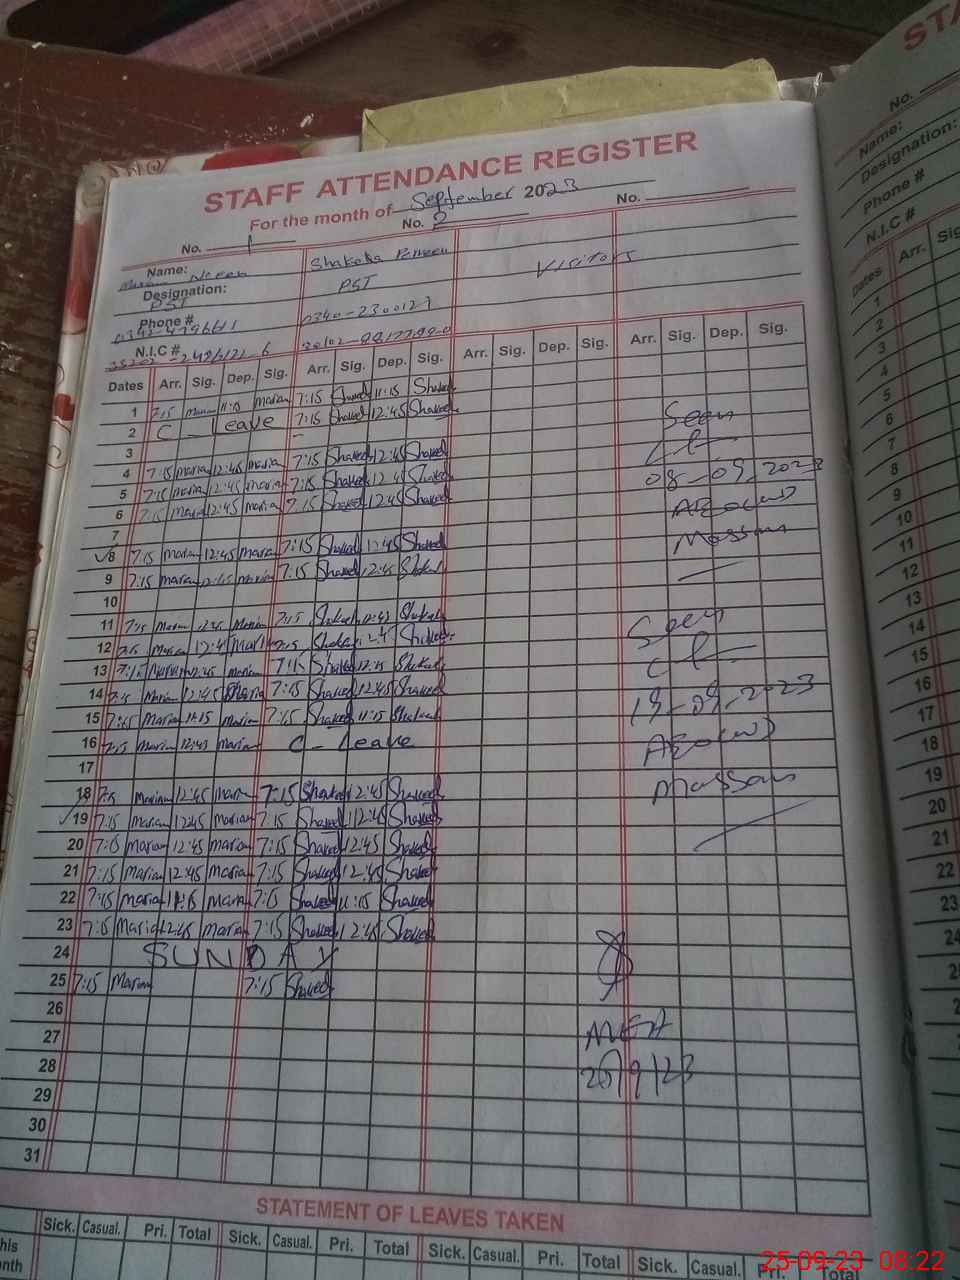 STAFF ATTENDANCE REGISTER
For the month of September 2023
No. 1 No. 2 No.
Name: Shakeela Parveen Visitors
Designation: PST PST
Phone # 0340-2300127
N.I.C #
Dates Arr. Sig. Dep. Sig. Arr. Sig. Dep. Sig. Arr. Sig. Dep. Sig. Arr. Sig. Dep. Sig.
1 7:15 Maria 11:15 Maria 7:15 Shakeel 11:15 Shakeel
2 C - Leave 7:15 Shakeel 12:45 Shakeel Seen
3
4 7:15 Maria 12:45 Maria 7:15 Shakeel 12:45 Shakeel
5 7:15 Maria 12:45 Maria 7:15 Shakeel 12:45 Shakeel 08-09-2023
6 7:15 Maria 12:45 Maria 7:15 Shakeel 12:45 Shakeel AEO
7
8 7:15 Maria 12:45 Maria 7:15 Shakeel 12:45 Shakeel
9 7:15 Maria 12:45 Maria 7:15 Shakeel 12:45 Shakeel
10
11 7:15 Maria 12:45 Maria 7:15 Shakeel 12:45 Shakeel Seen
12 7:15 Maria 12:45 Maria 7:15 Shakeel 12:45 Shakeel
13 7:15 Maria 12:45 Maria 7:15 Shakeel 12:45 Shakeel
14 7:15 Maria 12:45 Maria 7:15 Shakeel 12:45 Shakeel 19-09-2023
15 7:15 Maria 11:15 Maria 7:15 Shakeel 11:15 Shakeel
16 7:15 Maria 12:45 Maria C - Leave AEO
17
18 7:15 Maria 12:45 Maria 7:15 Shakeel 12:45 Shakeel
19 7:15 Maria 12:45 Maria 7:15 Shakeel 12:45 Shakeel
20 7:15 Maria 12:45 Maria 7:15 Shakeel 12:45 Shakeel
21 7:15 Maria 12:45 Maria 7:15 Shakeel 12:45 Shakeel
22 7:15 Maria 11:15 Maria 7:15 Shakeel 11:15 Shakeel
23 7:15 Maria 12:45 Maria 7:15 Shakeel 12:45 Shakeel
24 SUNDAY
25 7:15 Maria 7:15 Shakeel
26
27 MEA
28 25/9/23
29
30
31
STATEMENT OF LEAVES TAKEN
Sick. Casual. Pri. Total Sick. Casual. Pri. Total Sick. Casual. Pri. Total Sick. Casual. Pri. Total
his
nth
STA
No.
Name:
Designation:
Phone #
N.I.C #
Dates Arr. Sig
1
2
3
4
5
6
7
8
9
10
11
12
13
14
15
16
17
18
19
20
21
22
23
24
25
25-09-23 08:22